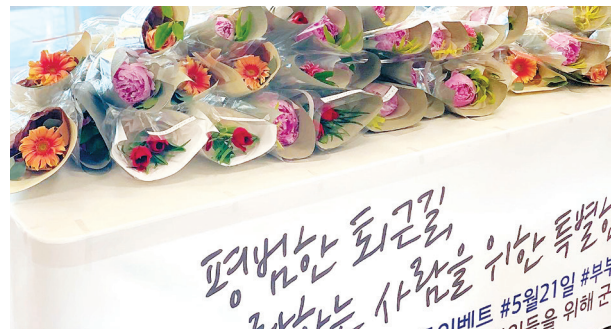 평범한 퇴근길,
사람을 위한 특별한
이벤트 #5월21일 #부부
위해